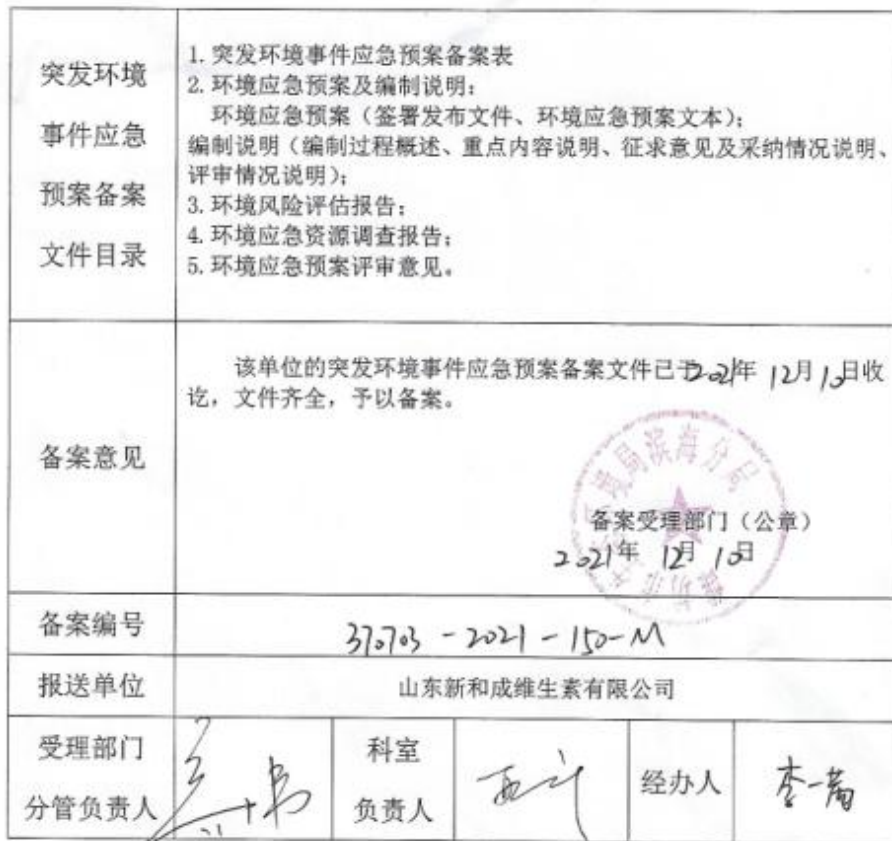 突发环境
事件应急
预案备案
文件目录
1. 突发环境事件应急预案备案表
2. 环境应急预案及编制说明：
环境应急预案（签署发布文件、环境应急预案文本）；
编制说明（编制过程概述、重点内容说明、征求意见及采纳情况说明、
评审情况说明）；
3. 环境风险评估报告；
4. 环境应急资源调查报告；
5. 环境应急预案评审意见。
备案意见
该单位的突发环境事件应急预案备案文件已于2021年 12月 10日收
讫，文件齐全，予以备案。
局滨海分局
备案受理部门（公章）
2021年 12月 10日
备案编号
370703 - 2021 - 150 - M
报送单位
山东新和成维生素有限公司
受理部门
分管负责人
科室
负责人
经办人